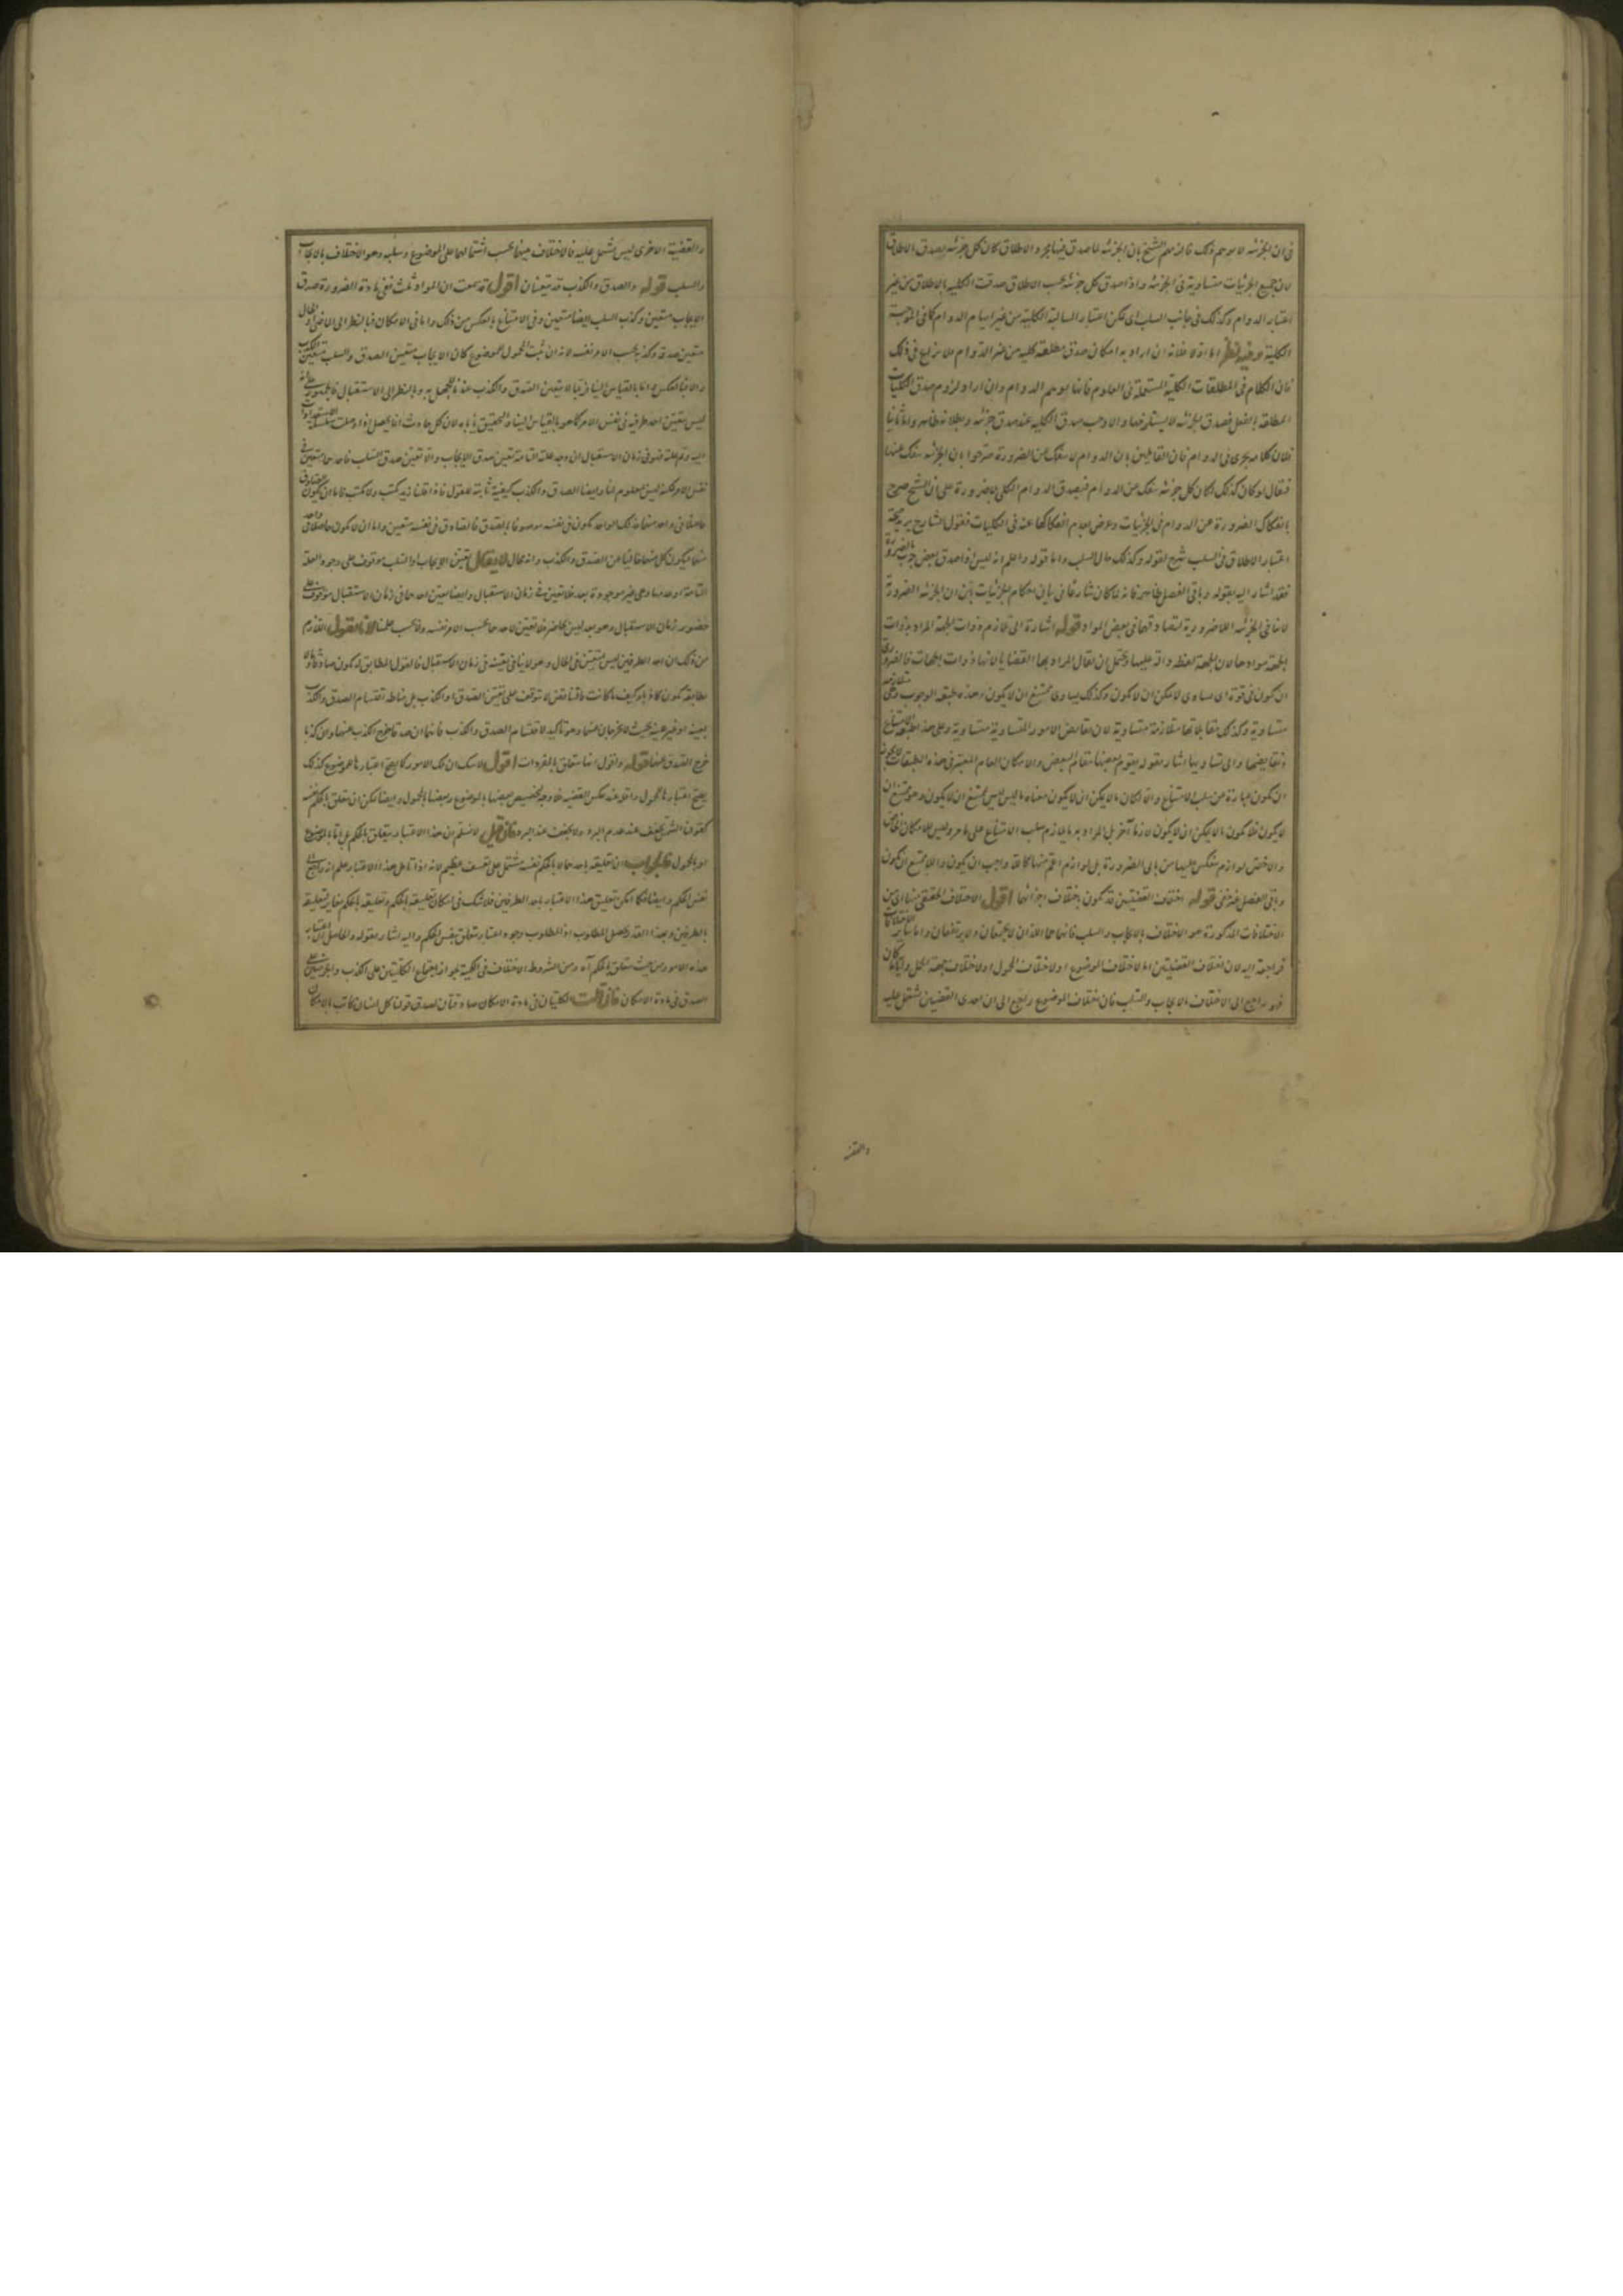 في ان الجزئية لا توهم ذلك فانه وهم الشيخ بان الجزئية لما صدق فيها مجرد الاطلاق كان كل جزئية يصدق الاطلاق
لان جميع الجزئيات متساوية في الجزئية واذا صدق كل جزئية بحسب الاطلاق صدقت الكلية بالاطلاق من غير
اعتبار الدوام وكذلك في جانب السلب اى يمكن اعتبار السالبة الكلية من غير ايهام الدوام كما في الموجبة
الكلية وفيه نظر اما اولا فلانه ان اراد به امكان صدق مطلقة كلية من غير الدوام فلا نزاع في ذلك
فان الكلام في المطلقات الكلية المستعملة في العلوم فانها يوهم الدوام وان اراد لزوم صدق الكليات
المطلقة بالفعل فصدق الجزئية لا يستلزمها والا وجب صدق الكلية عند صدق جزئية وبطلانه ظاهر واما ثانيا
فلان كلامه يجرى في الدوام فان القايلين بان الدوام لا ينفك عن الضرورة صرحوا بان الجزئية ينفك عنها
فيقال لو كان كذلك لكان كل جزئية ينفك عن الدوام فيصدق الدوام الكلى بلا ضرورة على ان الشيخ صرح
بانفكاك الضرورة عن الدوام في الجزئيات وعرض بعدم انفكاكها عنه في الكليات فقول الشارح يريد
اعتبار الاطلاق في السلب شرح لقوله وكذلك حال السلب واما قوله واعلم انه ليس اذا صدق بعض ج ب بالضرورة
فقد اشار اليه بقوله وباقي الفصل ظاهر فانه لما كان شارعا في بيان احكام الجزئيات بين ان الجزئية الضرورية
لا ينافي الجزئية اللاضرورية لتصادقهما في بعض المواد قوله اشارة الى تلازم ذوات الجهة المراد بذوات
الجهة موادها لان الجهة لفظة دالة عليها ويحتمل ان يقال المراد بها القضايا فانها ذوات الجهات فالضرورى
ان يكون في قوة اى يساوى لا يمكن ان لا يكون وكذلك يساوى ممتنع ان لا يكون وهذه طبقة الوجوب وهى متلازمة
متساوية وكذلك مقابلاتها متلازمة متساوية لان نقايض الامور المتساوية متساوية وعلى هذا طبقة الامتناع
ونقايضها والى تساويها اشار بقوله يقوم بعضها مقام البعض والامكان العام المعتبر في هذه الطبقات
ان يكون عبارة عن سلب الامتناع والا لكان ما لا يمكن ان لا يكون معناه ما ليس ليس بممتنع ان لا يكون وهو ممتنع ان
لا يكون فلا يكون ما لا يمكن ان لا يكون لازما آخر بل المراد به ما يلازم سلب الامتناع على ما مر وليس للامكان الخاص
والاخص لوازم ينعكس عليها من بابى الضرورة بل لوازم اعم منها كما لا واجب ان يكون ولا ممتنع ان يكون
وباقي الفصل غنى قوله اختلاف القضيتين قد يكون باختلاف اجزائها اقول الاختلاف الحقيقى منها اى من
الاختلافات المذكورة هو الاختلاف بالايجاب والسلب فانهما هما اللذان لا يجتمعان ولا يرتفعان واما ساير الاختلافات
فراجعة اليه لان اختلاف القضيتين اما لاختلاف الموضوع او لاختلاف المحمول او لاختلاف جهة الحمل واياما كان
فهو راجع الى الاختلاف بالايجاب والسلب فان اختلاف الموضوع راجع الى ان احدى القضيتين تشتمل عليه
والقضية
والقضية الاخرى ليس تشتمل عليه فالاختلاف بينهما بحسب اشتمالهما على الموضوع وسلبه وهو الاختلاف بالايجاب
والسلب قوله والصدق والكذب قد يتعينان اقول قد سمعت ان المواد ثلث ففى مادة الضرورة صدق
الايجاب متعين وكذب السلب ايضا متعين وفى الامتناع بالعكس من ذلك واما في الامكان فبالنظر الى الماضى والحال
متعين صدقه وكذبه بحسب الامر نفسه لانه ان ثبت المحمول للموضوع كان الايجاب متعين الصدق والسلب متعين الكذب
والا فبالعكس واما بالقياس الينا فربما لا يتعين الصدق والكذب عندنا للجهل به وبالنظر الى الاستقبال فالجمهور على انه
ليس يتعين احد طرفيه في نفس الامر كما هو بالقياس الينا والتحقيق ياباه لان كل حادث انما يحصل اذا وصلت سلسلة الاستعدادات
اليه وتم علته ففى زمان الاستقبال ان وجد علته التامة يتعين صدق الايجاب والا تعين صدق السلب فاحدهما متعين في
نفس الامر لكنه ليس بمعلوم لنا وايضا الصادق والكذب كيفية ثابتة للقول فاذا قلنا زيد يكتب ولا يكتب فاما ان يكون
حاصلا في واحد منهما فذلك الواحد يكون في نفسه موصوفا بالصدق فالصادق في نفسه متعين واما ان لا يكون حاصلا في واحد
منهما فيكون كل منهما خاليا عن الصدق والكذب وانه محال لا يقال تعين الايجاب او السلب موقوف على وجود العلة
التامة او عدمها وهى غير موجودة بعد فلا تعين في زمان الاستقبال وايضا تعين احدهما في زمان الاستقبال موقوف على
حضور زمان الاستقبال وهو بعد ليس بحاضر فلا تعين لاحدهما بحسب الامر نفسه ولا بحسب علمنا لانا نقول اللازم
من ذلك ان احد الطرفين ليس متعين في الحال وهو لا ينافي تعينه في زمان الاستقبال فالقول المطابق له يكون صادقا ولا
مطابقة يكون كاذبا وكيف ما كانت فالتناقض لا يتوقف على تعين الصدق او الكذب بل مناطه اقتسام الصدق والكذب
بعينه او غير عينه بحيث لا يخرجان عنهما وهو تأكيد لاقتسام الصدق والكذب فانهما ان صدقا خرج الكذب عنهما وان كذبا
خرج الصدق عنهما قوله واقول انما يتعلق بالمفردات اقول لا شك ان تلك الامور كما يصح اعتبارها للموضوع كذلك
يصح اعتبارها للمحمول واقله عند عكس القضية فلا وجه لتخصيص بعضها بالموضوع وبعضها بالمحمول وايضا يمكن ان يتعلق بالحكم نفسه
كقولنا الشمس يجفف عند عدم البرد ولا يجفف عند البرد فان قيل لا نسلم ان هذا الاعتبار يتعلق بالحكم بل اما بالموضوع
او بالمحمول فالجواب ان تعليقه باحدهما لا بالحكم نفسه مشتمل على تعسف عظيم لانه اذا تامل هذا الاعتبار علم انه راجع الى
نفس الحكم وايضا فكما امكن تعليق هذا الاعتبار باحد الطرفين فلا شك في امكان تعليقه بالحكم وتعليقه بالحكم مغاير لتعليقه
بالطرفين وبهذا القدر يحصل المطلوب اذ المطلوب وجود اعتبار يتعلق بنفس الحكم واليه اشار بقوله والحاصل ان اعتبار
هذه الامور من حيث يتعلق بالحكم آه ومن الشروط الاختلاف في الكمية لجواز اجتماع الكليتين على الكذب والجزئيتين على
الصدق في مادة الامكان فان قلت الكليتان في مادة الامكان صادقتان لصدق قولنا كل انسان كاتب بالامكان